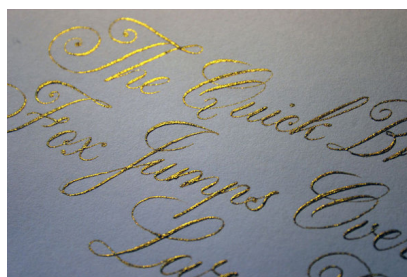 The Quick Br
Fox Jumps Over
Laz